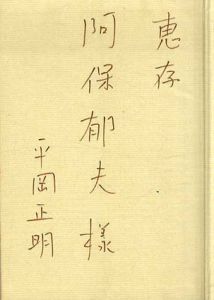 恵存
阿保郁夫様
平岡正明